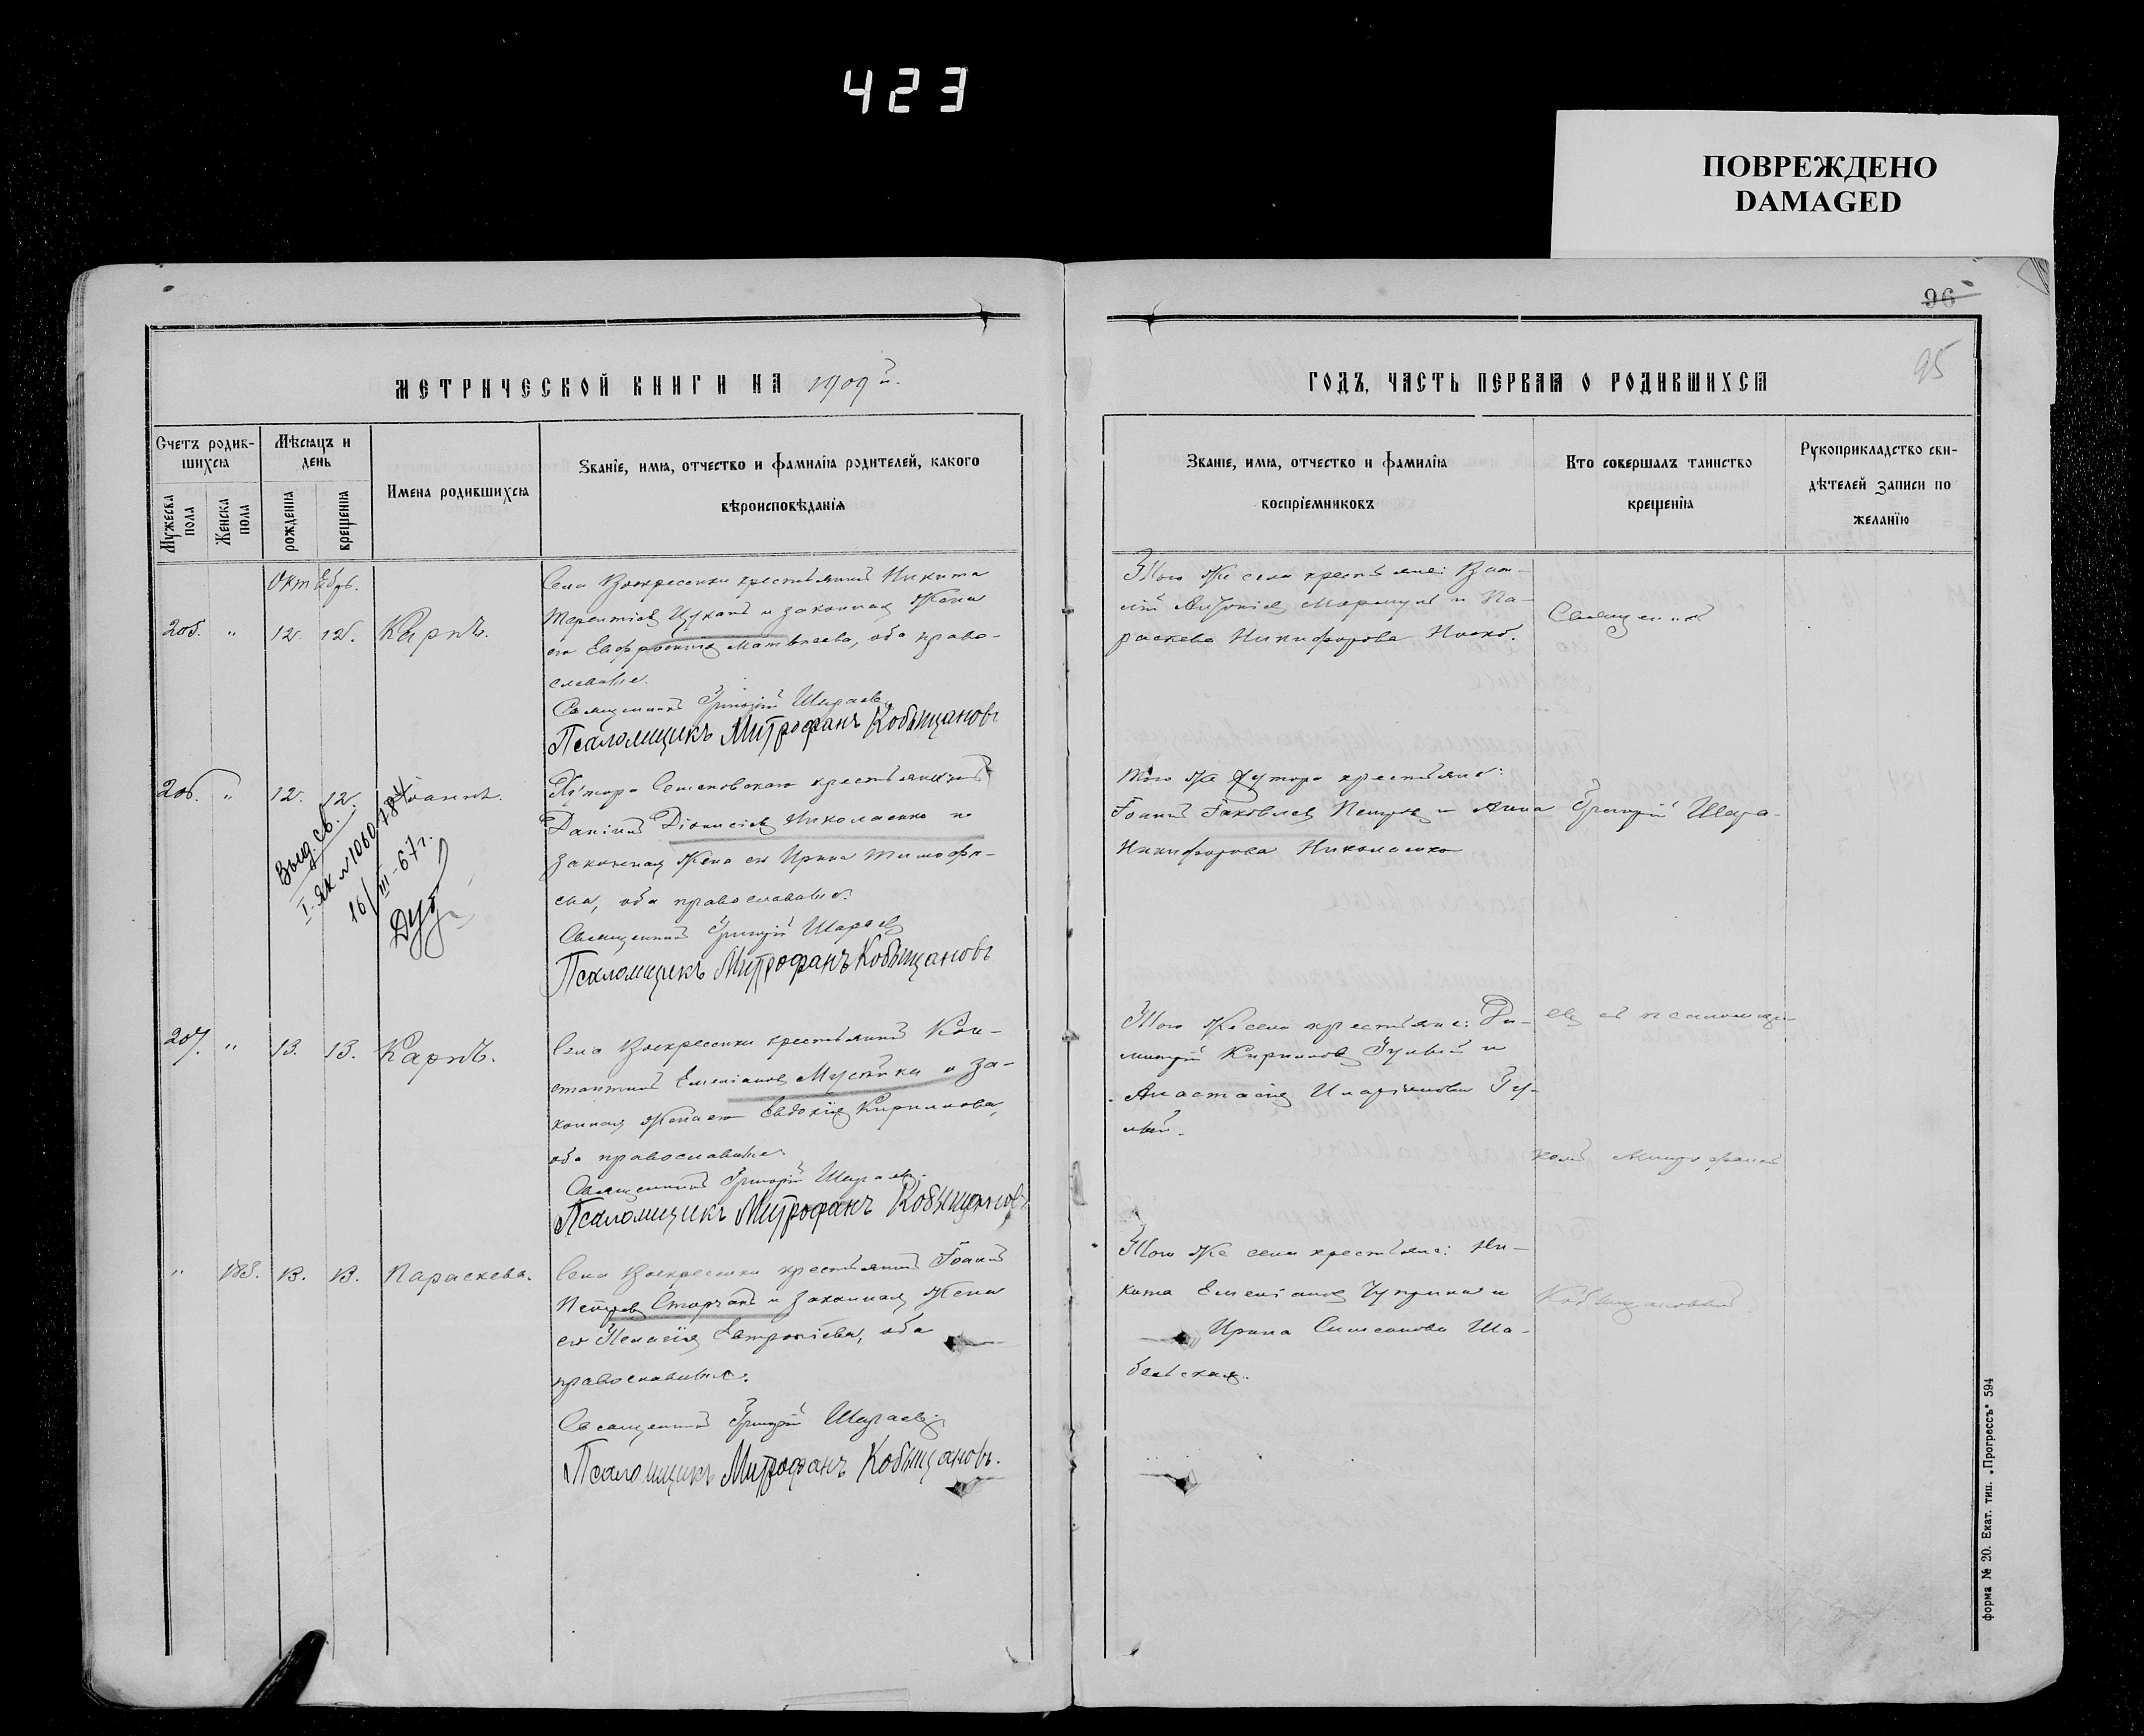 423
ПОВРЕЖДЕНО
DAMAGED
96
95
МЕТРИЧЕСКОЙ КНИГИ НА 1909й.
ГОДЪ, ЧАСТЬ ПЕРВАЯ О РОДИВШИХСЯ
Счетъ родив-
шихся
Мужеска пола
Женска пола
Мѣсяцъ и день
рожденія
крещенія
Имена родившихся
Званіе, имя, отчество и фамилія родителей, какого
вѣроисповѣданія
Званіе, имя, отчество и фамилія
воспріемниковъ
Кто совершалъ таинство
крещенія
Рукоприкладство сви-
дѣтелей записи по
желанію
Октябрь.
205. " 12. 12. Карпъ.
Села Воскресенки крестьянинъ Никита
Терентіев Цуканъ и законная жена
его Евфросинія Матвѣева, оба право-
славные.
Священникъ Григорій Шараевъ
Псаломщикъ Митрофанъ Кобыщановъ
Того же села крестьяне:
Антоніев и Па-
раскева Никифорова
Священникъ
206. " 12. 12. Іоаннъ.
Выд. св.
I-ЯК №1060784
16/III-67г.
Хутора Семеновскаго крестьянинъ
Даніилъ Діонисіев Николаенко и
законная жена его Ирина Тимофе-
ева, оба православные.
Священникъ Григорій Шараев
Псаломщикъ Митрофанъ Кобыщановъ
того же хутора крестьяне:
Іоаннъ Іаковлев и Анна
Никифорова Николаенко
Григорій Шара-
207. " 13. 13. Карпъ.
Села Воскресенки крестьянинъ Кон-
стантинъ Емеліанов и за-
конная жена его Евдокія Кириллова,
оба православные
Священникъ Григорій Шараев.
Псаломщикъ Митрофанъ Кобыщановъ
Того же села крестьяне: Ди-
митрій Кириллов Гулый и
Анастасія Иларіонова Гу-
лый.
ев съ псаломщи-
комъ Митрофаномъ
" 183. 13. 13. Параскева.
Села Воскресенки крестьянинъ Іоаннъ
Петров Старчакъ и законная жена
его Пелагія Евтропіева, оба
православные.
Священникъ Григорій Шараевъ
Псаломщикъ Митрофанъ Кобыщановъ.
Того же села крестьяне: Ни-
кита Емеліанов Чуприна и
Ирина Симеонова Ша-
бельская.
Кобыщановымъ.
форма № 20. Екат. тип. „Прогрессъ" 594